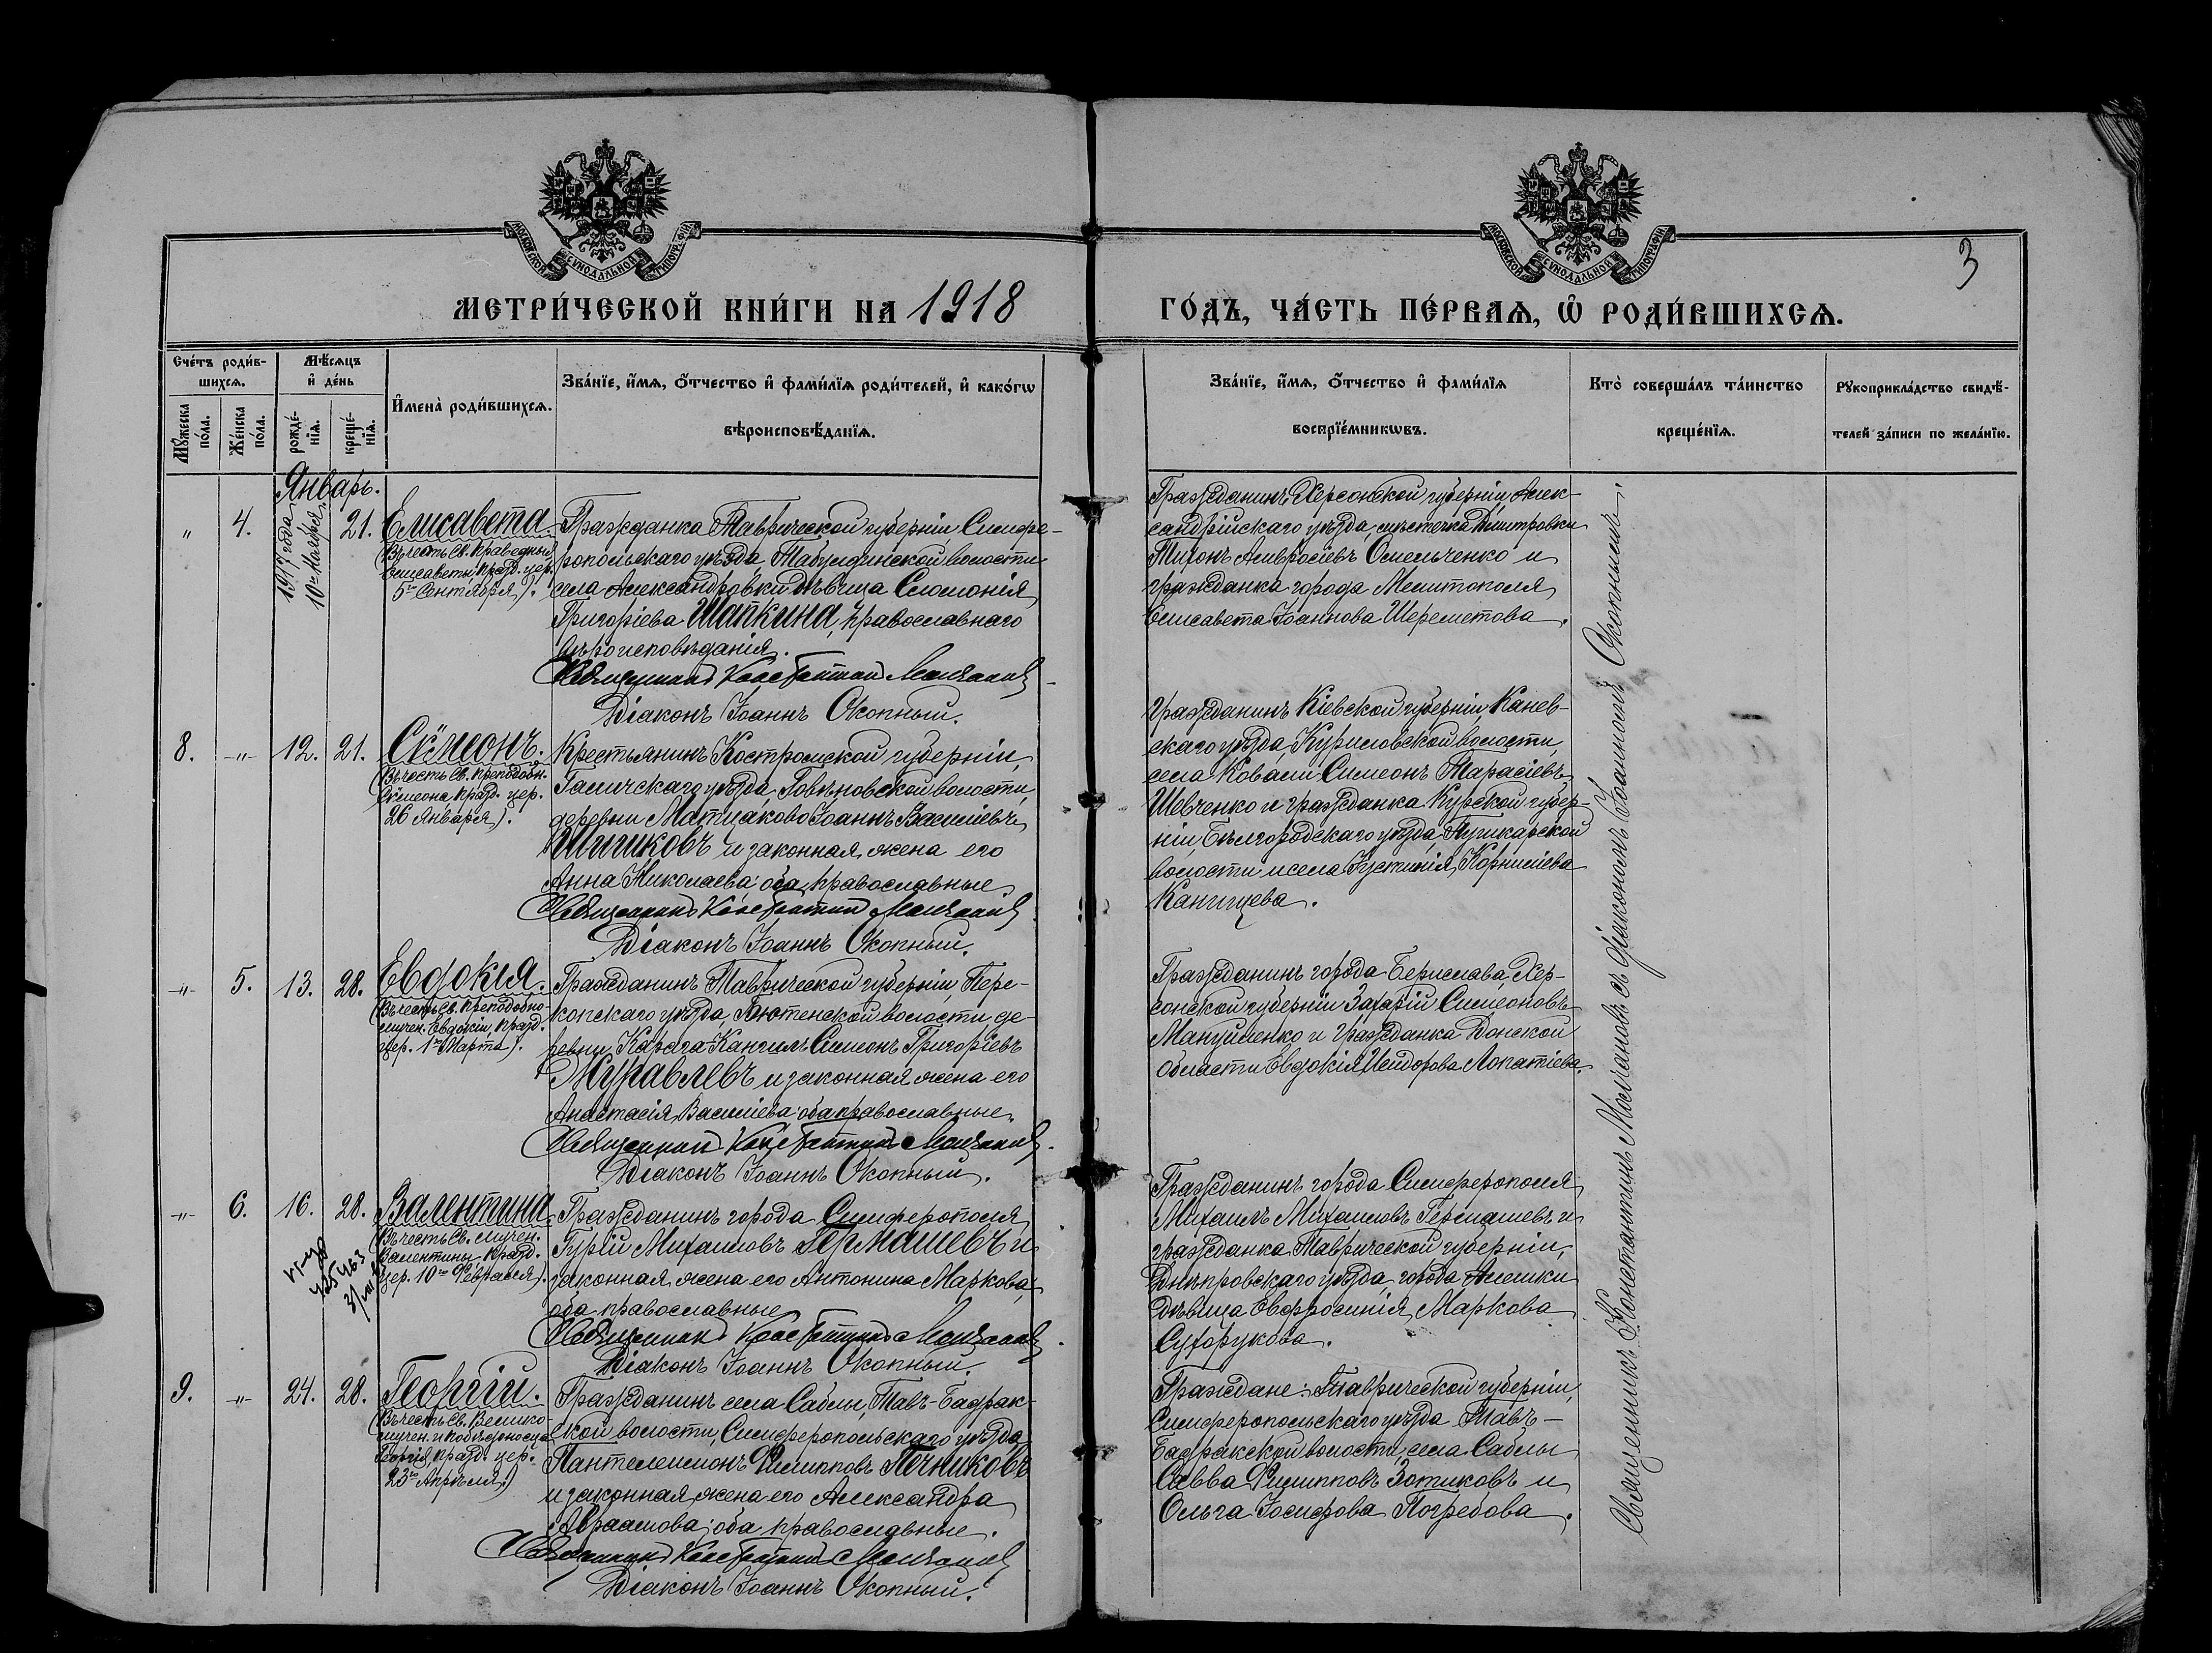 МОСКОВСКОЙ СѴНОДАЛЬНОЙ ТИПОГРАФІИ
МОСКОВСКОЙ СѴНОДАЛЬНОЙ ТИПОГРАФІИ
3
МЕТРИ́ЧЕСКОЙ КНИ́ГИ НА 1918
ГО́ДЪ, ЧА́СТЬ ПЕ́РВАѦ, Ѽ РОДИ́ВШИХСѦ.
Сче́тъ роди́в-
шихсѧ.
Мѣ́сѧцъ
и҆ де́нь
Мꙋ́жеска
по́ла.
Же́нска
по́ла.
рожде́-
нїѧ.
креще́-
нїѧ.
И҆мена̀ роди́вшихсѧ.
Зва́нїе, и҆́мѧ, ѻ҆́тчество и҆ фами́лїѧ роди́телей, и҆ како́гѡ
вѣроисповѣ́данїѧ.
Зва́нїе, и҆́мѧ, ѻ҆́тчество и҆ фами́лїѧ
воспрїе́мникѡвъ.
Кто̀ соверша́лъ та́инство
креще́нїѧ.
Рꙋкоприкла́дство свидѣ́-
телей за́писи по жела́нїю.
Январь.
„ 4. 1917 года 10го Ноября 21. Елисавета
(Въ честь Св. Праведныя
Елисаветы, празд. цер.
5го Сентября).
Гражданка Таврической губерніи, Симфе-
ропольскаго уѣзда, Табулдинской волости
села Александровки дѣвица Соломонія
Григоріева Шапкина, православнаго
вѣроисповѣданія.
Священникъ Константинъ Молчановъ
Діаконъ Іоаннъ Окопный.
Гражданинъ Херсонской губерніи, Алек-
сандрійскаго уѣзда, мѣстечка Дмитровки
Тихонъ Амвросіевъ Омельченко и
гражданка города Мелитополя
Елисавета Іоаннова Шереметова.
8. -„- 12. 21. Сѵмеонъ.
(Въ честь Св. преподобн.
Сѵмеона, празд. цер.
26 Января).
Крестьянинъ Костромской губерніи,
Галичскаго уѣзда, Говѣновской волости,
деревни Матцаково Іоаннъ Василіевъ
Шишковъ и законная жена его
Анна Николаева; оба православные
Священникъ Константинъ Молчановъ
Діаконъ Іоаннъ Окопный.
Гражданинъ Кіевской губерніи, Канев-
скаго уѣзда, Куриловской волости,
села Ковали Симеонъ Тарасіевъ
Шевченко и гражданка Курской губер-
ніи, Бѣлгородскаго уѣзда, Пушкарской
волости и села Іустинія Корниліева
Канищева.
-„- 5. 13. 28. Евдокія.
(Въ честь Св. преподобно-
мучен. Евдокіи, празд.
цер. 1го Марта).
Гражданинъ Таврической губерніи, Пере-
копскаго уѣзда, Бютенской волости де-
ревни Карага-Кангилъ Симеонъ Григоріевъ
Журавлевъ и законная жена его
Анастасія Василіева; оба православные.
Священникъ Константинъ Молчановъ.
Діаконъ Іоаннъ Окопный.
Гражданинъ города Берислава, Хер-
сонской губерніи Захарій Симеоновъ
Мануйленко и гражданка Донской
области Евдокія Исидорова Лопатіева.
-„- 6. 16. 28. Валентина
(Въ честь Св. мучен.
Валентины, празд.
цер. 10го Февраля).
Гражданинъ города Симферополя
Гурій Михаиловъ Гермашевъ и
законная жена его Антонина Маркова;
оба православные
Священникъ Константинъ Молчановъ.
Діаконъ Іоаннъ Окопный.
Гражданинъ города Симферополя
Михаилъ Михаиловъ Гермашевъ и
гражданка Таврической губерніи,
Днѣпровскаго уѣзда, города Алешки
дѣвица Евфросинія Маркова
Сухорукова.
9. -„- 24. 28. Георгій.
(Въ честь Св. Велико-
мучен. и побѣдоносца
Георгія, празд. цер.
23го Апрѣля.)
Гражданинъ села Саблы, Тавъ-Бадрак-
ской волости, Симферопольскаго уѣзда
Пантелеимонъ Филипповъ Печниковъ
и законная жена его Александра
Авраамова; оба православные.
Священникъ Константинъ Молчановъ
Діаконъ Іоаннъ Окопный.
Граждане: Таврической губерніи,
Симферопольскаго уѣзда Тавъ-
Бадракской волости, села Саблы
Савва Филипповъ Зотиковъ и
Ольга Іосифова Погребова.
Священникъ Константинъ Молчановъ съ діакономъ Іоанномъ Окопнымъ.